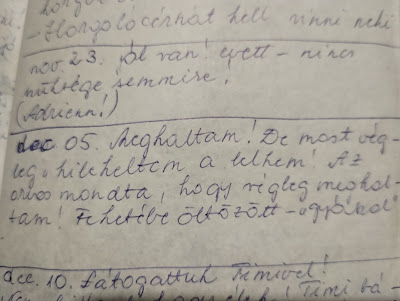 - Horgolócérnát kell vinni neki
nov 23. Jól van! evett - nincs
szüksége semmire.
(Adrienn!)
dec 05. Meghaltam! De most vég-
leg, kileheltem a lelkem! Az
orvos mondta, hogy végleg meghal-
tam! Fehérbe öltözött
dec. 10. Látogattuk Timivel!